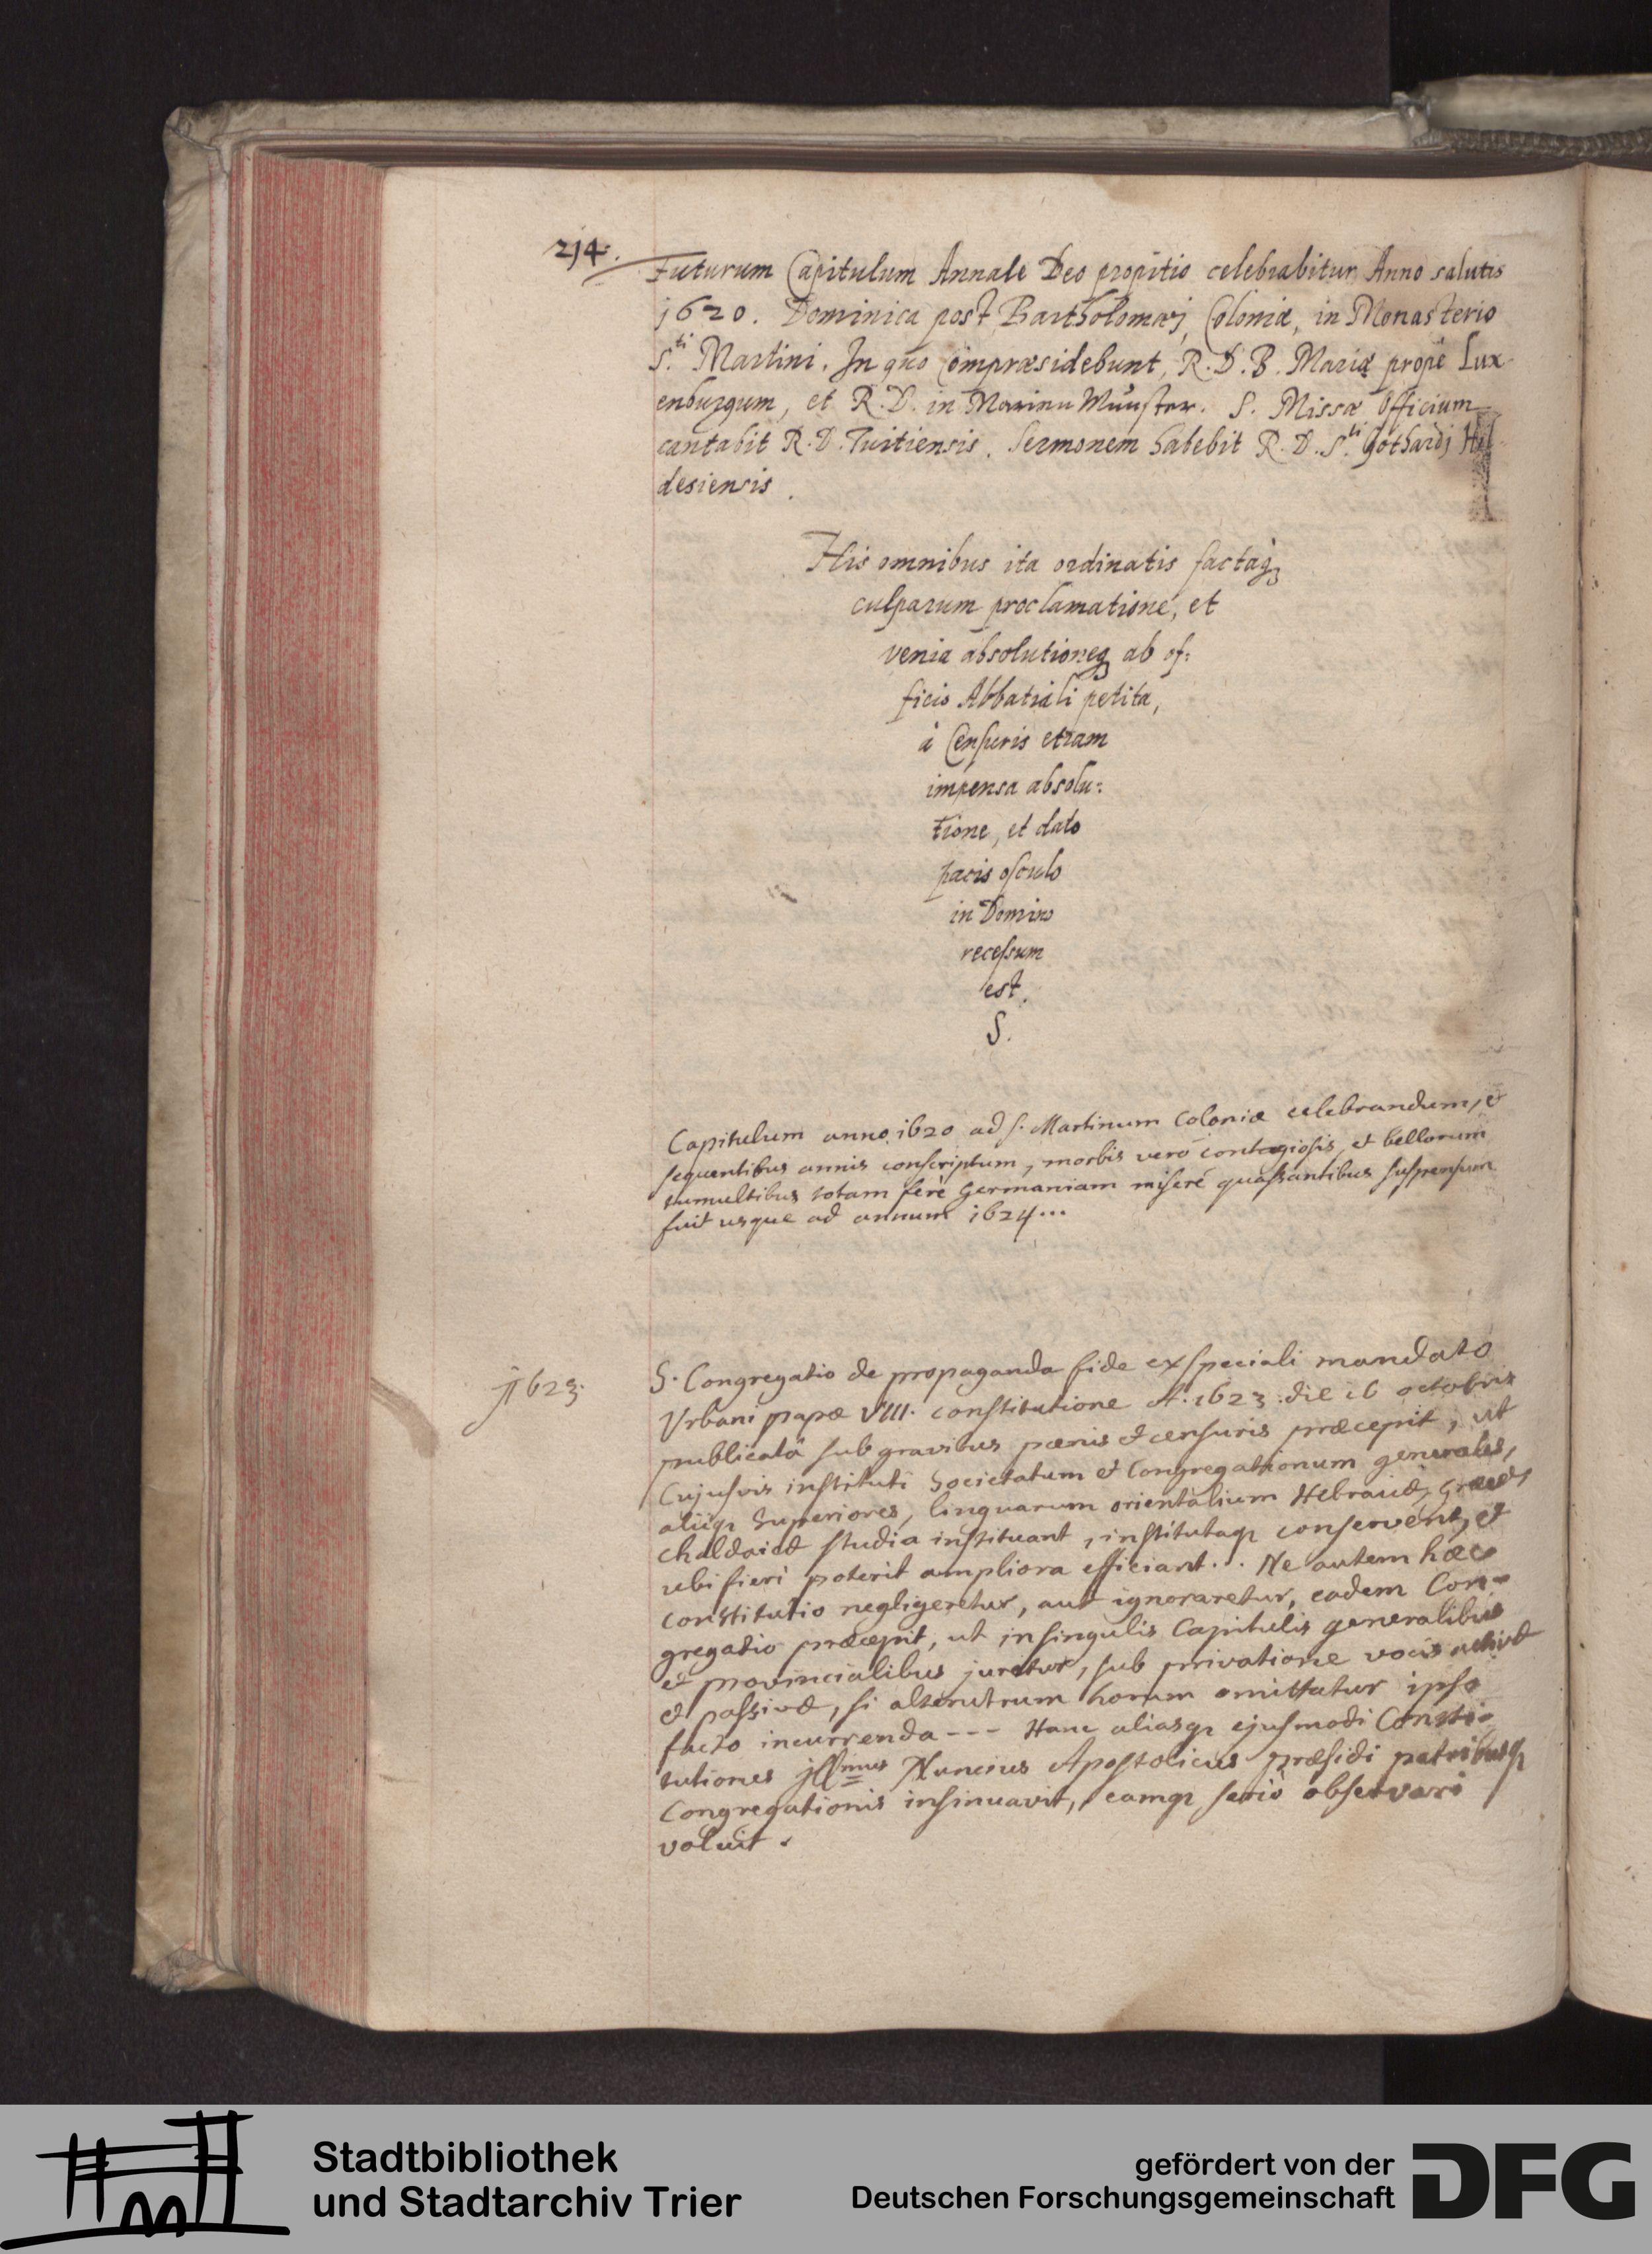 214.
Futurum Capitulum Annale Deo propitio celebrabitur Anno salutis
1620. Dominica post Bartholomæj, Coloniæ, in Monasterio
S.ti Martini. In quo Compræsidebunt, R.D.B. Mariæ propè Lux-
enburgum, et R.D. in Marien Münster. S. Missæ Officium
cantabit R.D. Tuitiensis. Sermonem habebit R.D. S.ti Gothardj Hil-
desiensis.
His omnibus ita ordinatis factaq3
culparum proclamatione, et
venia absolutioneq3 ab of:
ficio Abbatiali petita,
à Censuris etiam
impensa absolu:
tione, et dato
pacis osculo
in Domino
recessum
est.
S.
Capitulum anno 1620 ad S. Martinum Coloniæ celebrandum, &
sequentibus annis conscriptum, morbis verò contagiosis, et bellorum
tumultibus totam ferè Germaniam miserè quassantibus suspensum
fuit usque ad annum 1624...
1623.
S. Congregatio de propaganda fide ex speciali mandato
Urbani papæ VIII. constitutione A. 1623 die 16 octobris
publicatâ sub gravibus pœnis et censuris præcepit, ut
Cujusvis instituti Societatum et Congregationum generales,
aliiq3 Superiores, linguarum orientalium Hebraicæ, Græcæ,
chaldaicæ studia instituant, institutaq3 conservent, et
ubi fieri poterit ampliora efficiant... Ne autem hæc
constitutio negligeretur, aut ignoraretur, eadem Con-
gregatio præcepit, ut in singulis Capitulis generalibus
et provincialibus juretur, sub privatione vocis activæ
et passivæ, si alterutrum horum omittatur ipso
facto incurrenda --- Hanc aliasq3 ejusmodi Consti-
tutiones Illmus Nuncius Apostolicus præsidi patribusq3
Congregationis insinuavit, eamq3 seriò observari
voluit.
Stadtbibliothek
und Stadtarchiv Trier
gefördert von der
Deutschen Forschungsgemeinschaft
DFG